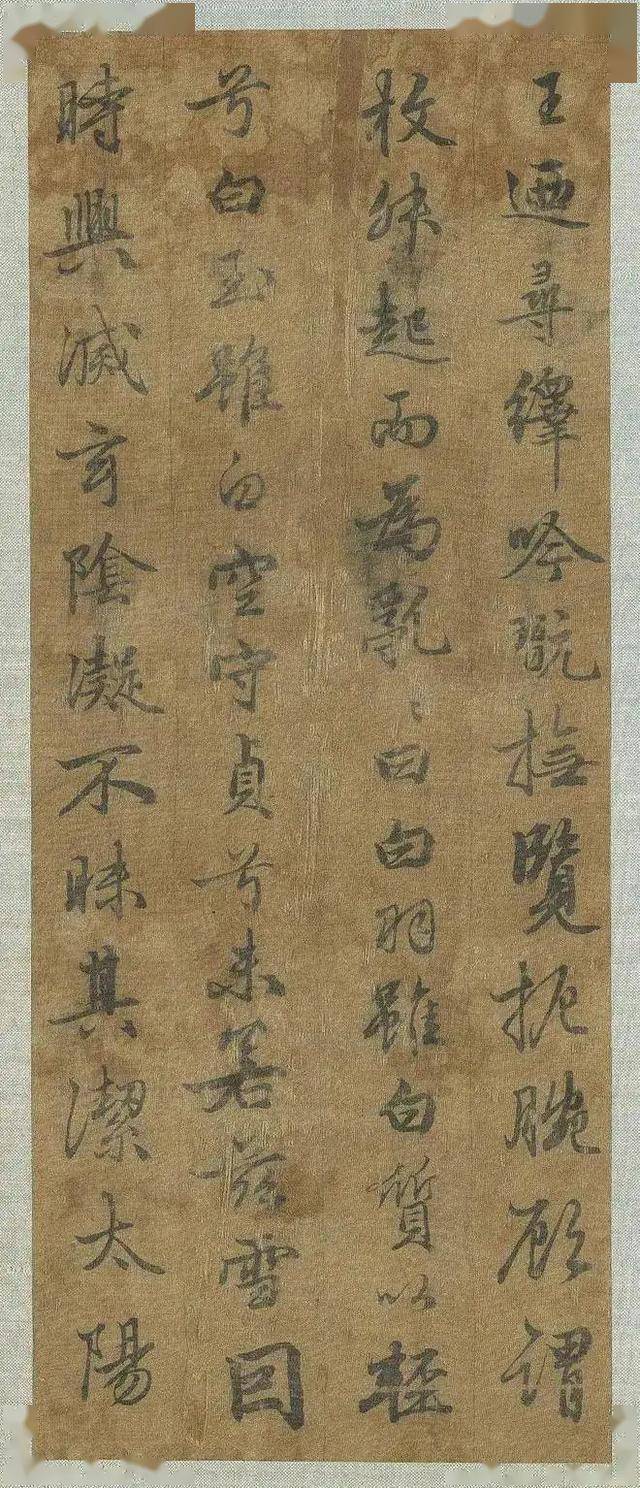 王迺尋繹吟翫撫覽扼腕顧謂
枚叔起而為亂亂曰白羽雖白質以輕
兮白玉雖白空守貞兮未若茲雪因
時興滅玄陰凝不昧其潔太陽